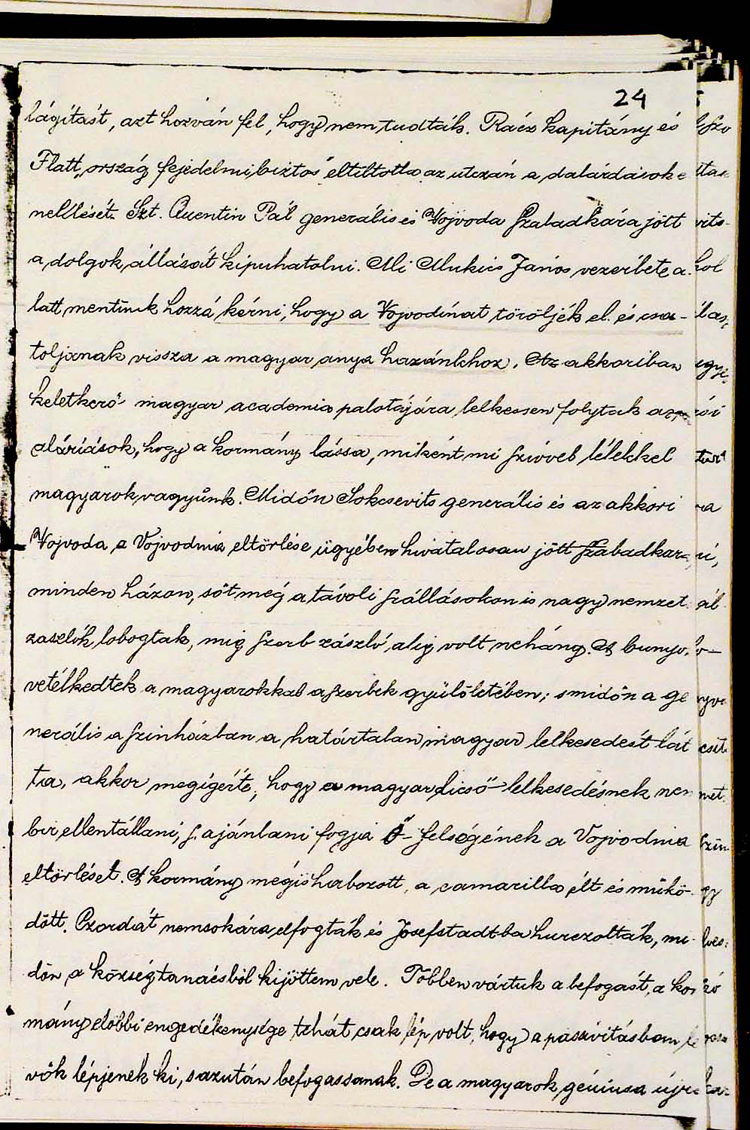 24
lágitást, azt hozván fel, hogy nem tudták. Rácz kapitány és
Flatt „ország fejedelmi biztos" eltiltotta az utczán a dalárdások é-
neklését. Szt. Quentin Pál generális és Vojvoda Szabadkára jött
a dolgok állását kipuhatolni. Mi Mukics János vezérlete a-
latt mentünk hozzá kérni, hogy a Vojvodinát töröljék el és csa-
toljanak vissza a magyar anya hazánkhoz. Az akkoriban
keletkező magyar academia palotájára lelkessen folytak az
aláriások, hogy a kormány lássa, miként mi szivvel lélekkel
magyarok vagyunk. Midőn Sokcsevits generális és az akkori
Vojvoda, a Vojvodnia eltörlése ügyében hivatalosan jött Szabadkára,
minden házon, sőt még a távoli szállásokon is nagy nemzeti
zaszlók lobogtak, mig szerb zászló, alig volt néhány. A bunyo.
vetélkedtek a magyarokkal a szerbek gyülöletében; s midőn a ge
nerális a szinházban a határtalan magyar lelkesedést lát
ta, akkor megigérte, hogy a magyar dicső lelkesedésnek nem
bir ellentállani, s ajánlani fogja Ő-felségének a Vojvodnia
eltörlését. A kormány mégis habozott, a camarilla élt és mükö-
dött. Czordát nemsokára elfogták és Josefstadtba hurczolták, mi-
dőn a községtanácsból kijöttem vele. Többen vártuk a befogást, a kor
mány előbbi engedékenysége tehát csak lép volt, hogy a passivitásban le
vők lépjenek ki, s azután befogassanak. De a magyarok géniusa újra